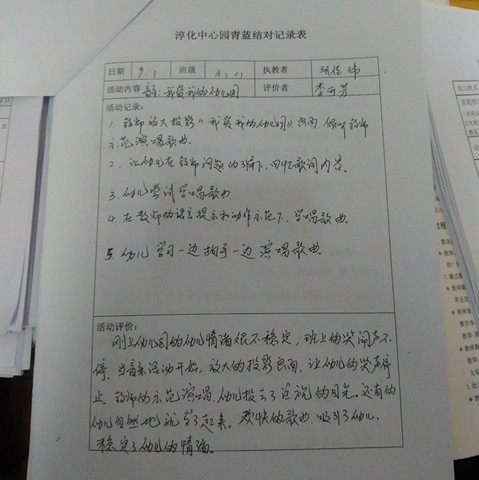 淳化中心园青蓝结对记录表
日期 9.1 班级 小(1) 执教者
活动内容 音:我爱我的幼儿园 评价者 李可芳
活动记录:
1. 教师放大投影《我爱我的幼儿园》画面,倾听教师
示范演唱歌曲.
2. 让幼儿在教师问题的引导下,回忆歌词内容.
3. 幼儿尝试学唱歌曲
4. 在教师的语言提示和动作示范下,学唱歌曲.
5. 幼儿学习一边拍手一边演唱歌曲.
活动评价:
刚上幼儿园的幼儿情绪很不稳定,班上的哭闹声不
停.当音乐活动开始,放大的投影画面,让幼儿的哭声停
止.教师的示范演唱,幼儿投去了的目光.
幼儿自然地就学了起来.欢快的歌曲,吸引了幼儿,
稳定了幼儿的情绪。